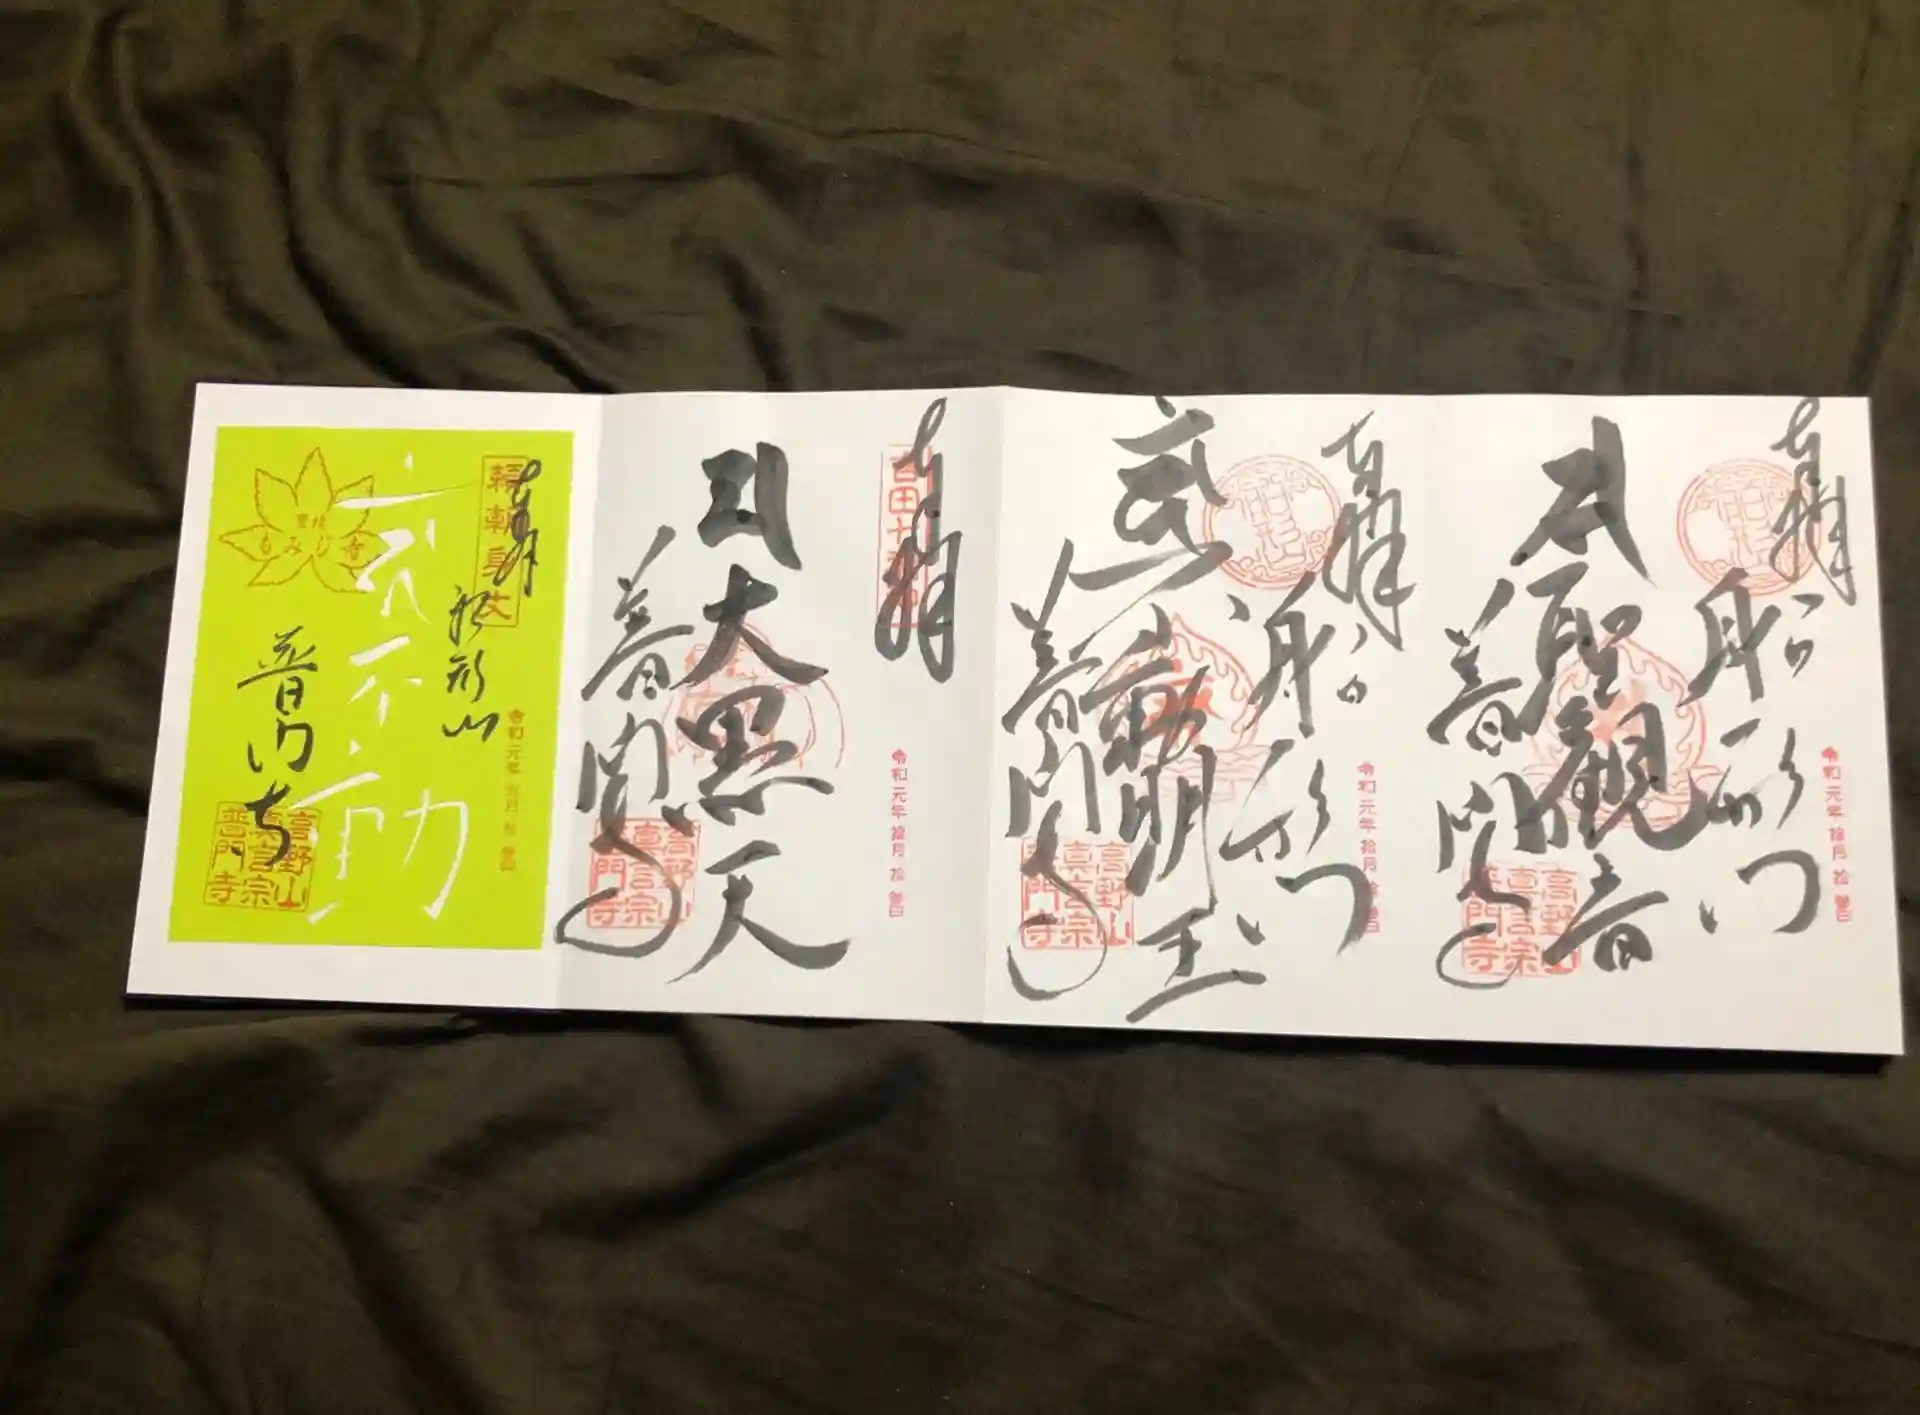 奉拝
船形山
本聖観音
普門寺
高野山
真言宗
普門寺
令和元年拾月拾
奉拝
船形山
不動明王
普門寺
高野山
真言宗
普門寺
令和元年拾月拾
奉拝
大黒天
普門寺
高野山
真言宗
普門寺
令和元年拾月拾
奉拝
船形山
不動
もみじ寺
普門寺
高野山
真言宗
普門寺
令和元年拾月拾